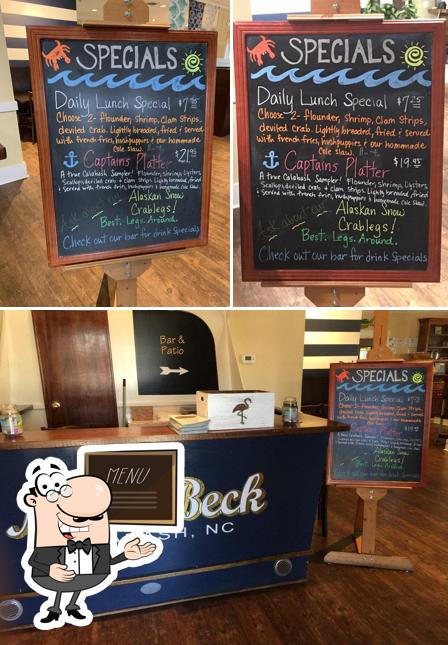 SPECIALS
Daily Lunch Special $7.95
Choose 2- flounder, shrimp, Clam Strips,
deviled crab. Lightly breaded, fried & served
with french fries, hushpuppies & our homemade
Cole slaw.
Captains Platter $21.95
A true Calabash Sampler! Flounder, shrimp, Oysters,
Scallops, deviled crab + clam strips. Lightly breaded, fried
& served with french fries, hushpuppies & homemade Cole slaw.
Ask about our
Alaskan Snow
Crablegs!
Best. Legs. Around.
Check out our bar for drink Specials
SPECIALS
Daily Lunch Special $7.25
Choose 2- flounder, shrimp, Clam Strips,
deviled crab. Lightly breaded, fried & served
with french fries, hushpuppies & our homemade
Cole slaw.
Captains Platter $19.95
A true Calabash Sampler! Flounder, shrimp, Oysters,
Scallops, deviled crab + clam strips. Lightly breaded, fried
& served with french fries, hushpuppies & homemade Cole slaw.
Ask about our
Alaskan Snow
Crablegs!
Best. Legs. Around.
Check out our bar for drink Specials
Bar &
Patio
SPECIALS
Daily Lunch Special
Captains Platter
Alaskan Snow
Crablegs!
Best. Legs. Around.
MENU
Beck
SH, NC